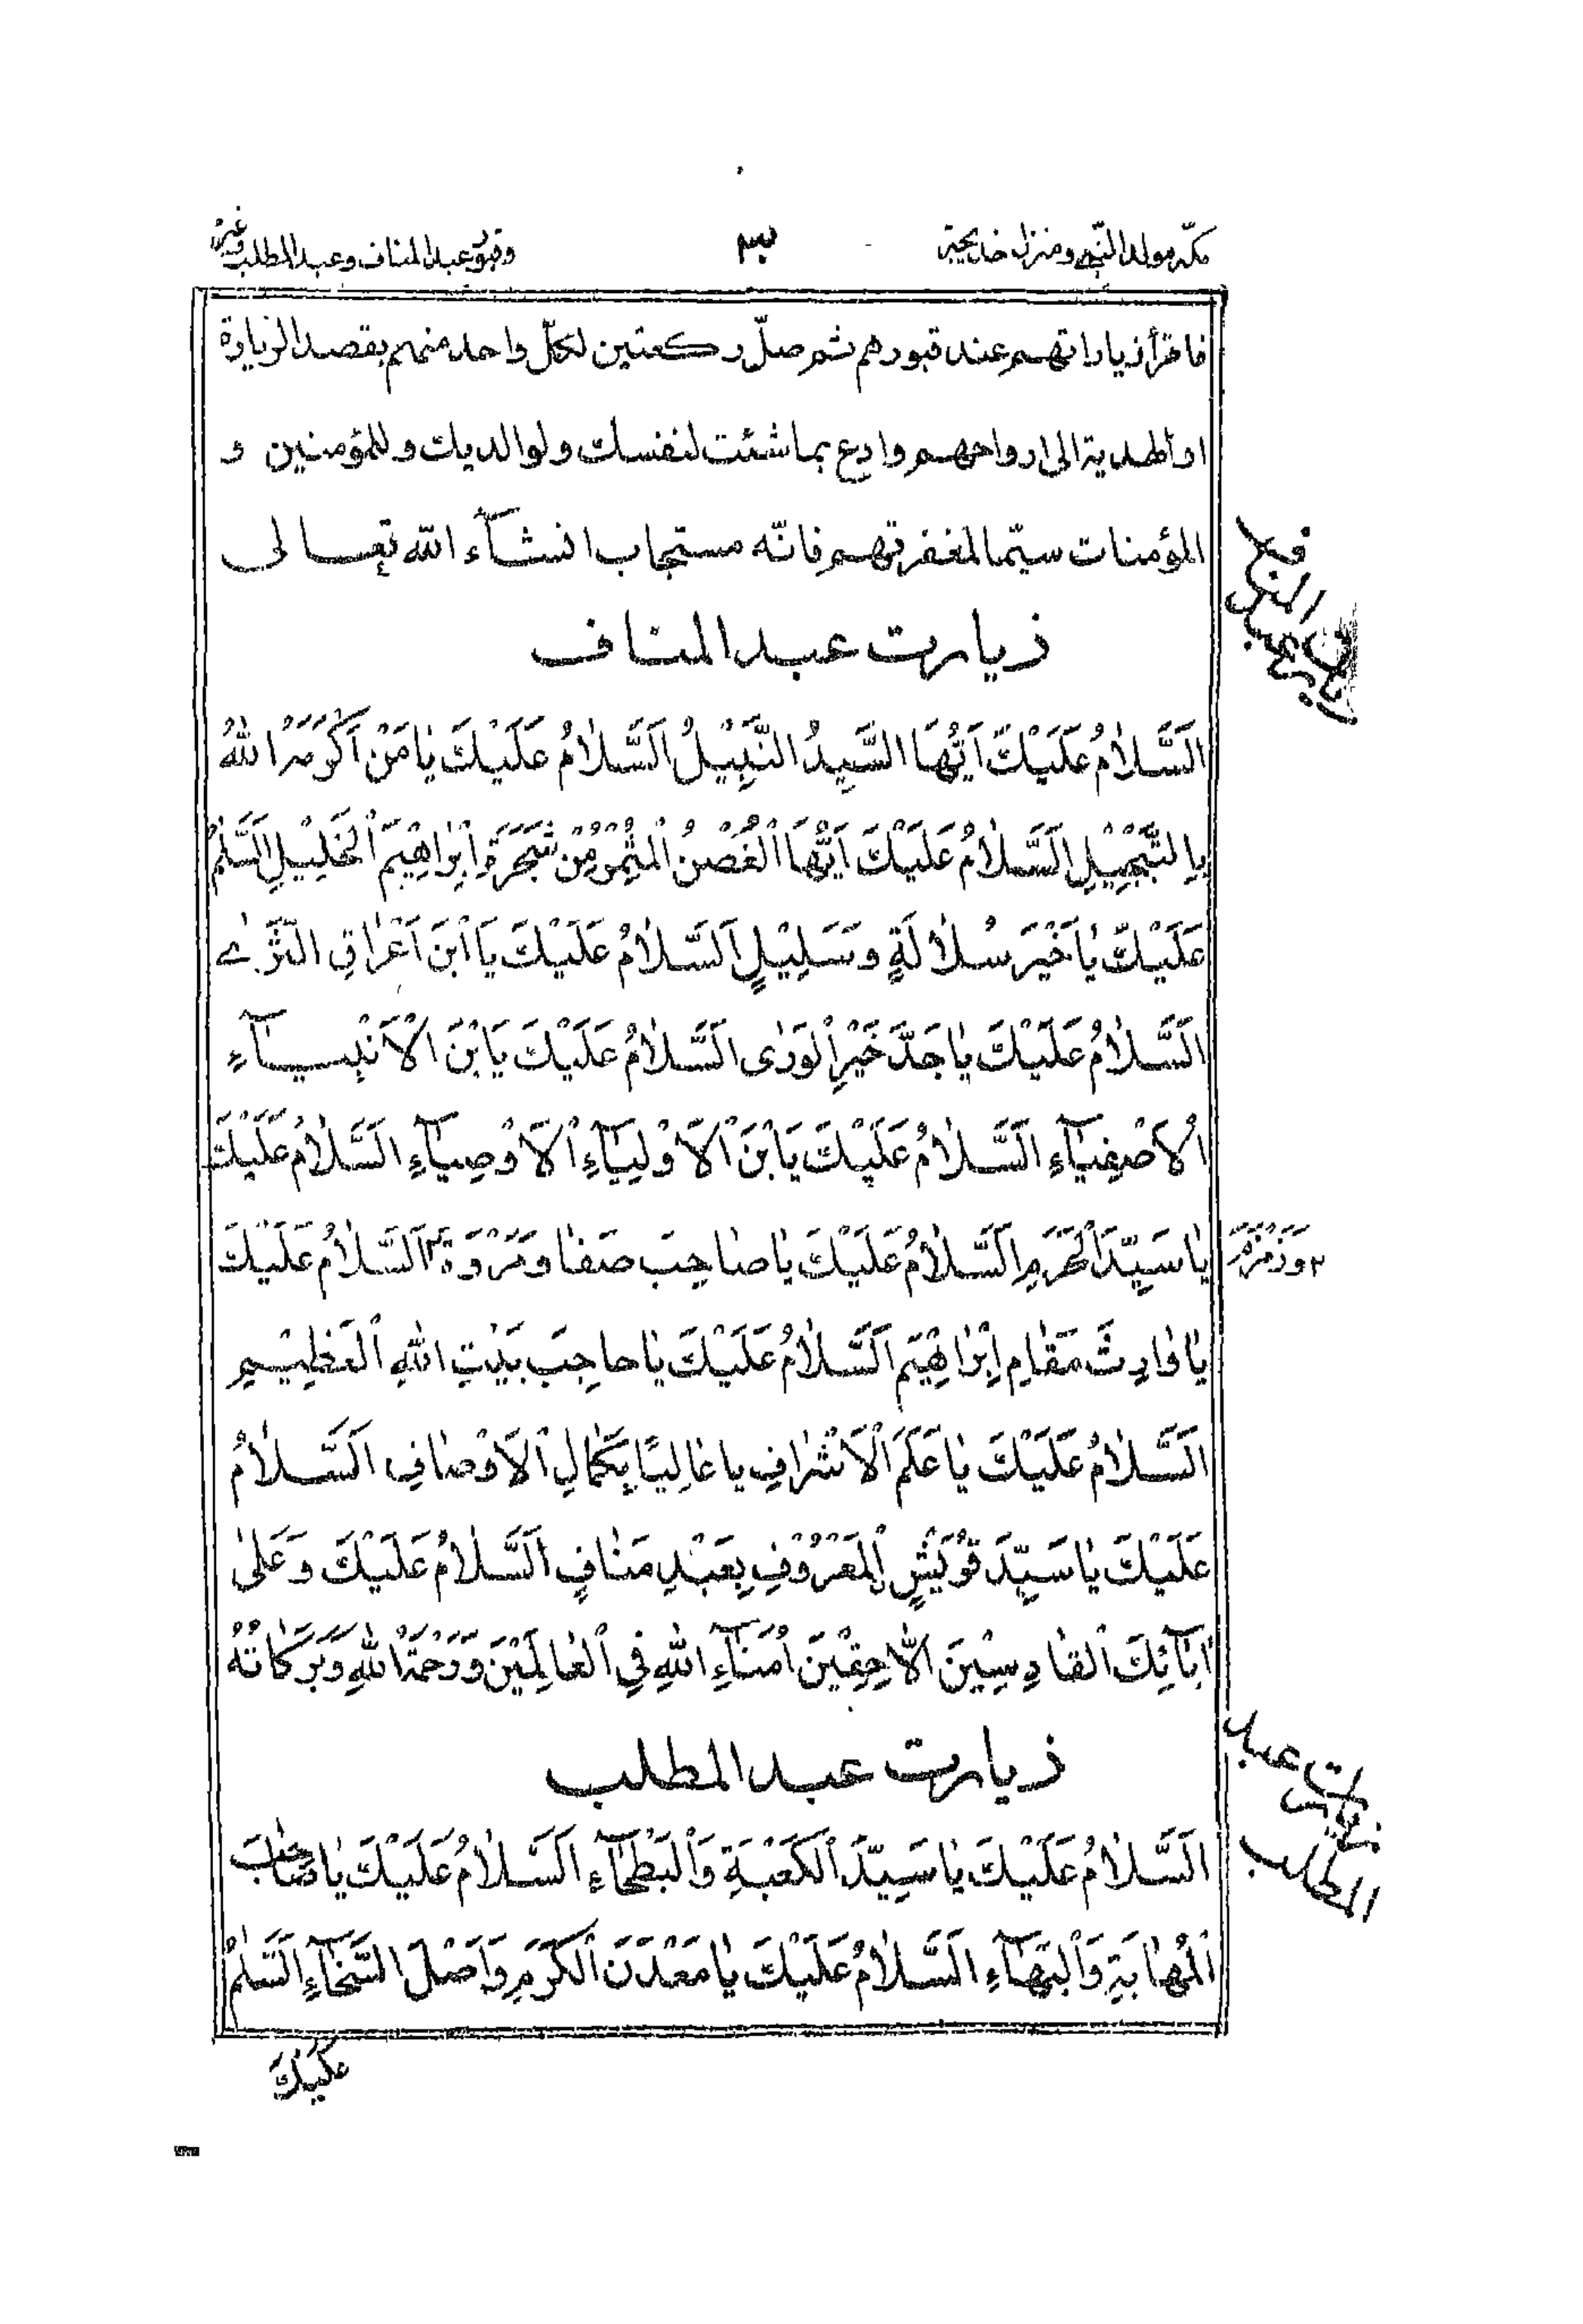 مكّه مولد النّبى ومنزل خديجة
٣
وقبور عبد المناف وعبد المطلب وغيره
فاقرأ زياراتهم عند قبورهم ثم صلّ ركعتين لكلّ واحد منهم بقصد الزيارة
او الهدية الى ارواحهم وادع بما شئت لنفسك ولوالديك وللمؤمنين و
المؤمنات سيّما لمغفرتهم فانّه مستجاب انشآء الله تعالى
زيارت عبد المناف
اَلسَّلامُ عَلَيْكَ اَيُّهَا السَّيِدُ النَّبِيْلُ اَلسَّلامُ عَلَيْكَ يا مَنْ اَكْرَمَهُ اللهُ
بِالتَّبْجِيْلِ اَلسَّلامُ عَلَيْكَ اَيُّهَا الْغُصْنُ الْمُثْمِرُ مِنْ شَجَرَةِ اِبْراهِيْمَ الْخَلِيْلِ اَلسَّلمُ
عَلَيْكَ يا خَيْرَ سُلالَةٍ وَسَلِيْلٍ اَلسَّلامُ عَلَيْكَ يَا ابْنَ اَعْراقِ الثَّرٰے
اَلسَّلامُ عَلَيْكَ يا جَدَّ خَيْرِ الْوَرٰى اَلسَّلامُ عَلَيْكَ يَابْنَ الْاَنْبِيآءِ
الْاَصْفِيآءِ اَلسَّلامُ عَلَيْكَ يَابْنَ الْاَوْلِيآءِ الْاَوْصِيآءِ اَلسَّلامُ عَلَيْكَ
يا سَيِّدَ الْحَرَمِ اَلسَّلامُ عَلَيْكَ يا صاحِبَ صَفا وَمَرْوَةَ ٢ اَلسَّلامُ عَلَيْكَ
٢ وَزَمْزَمَ
يا وارِثَ مَقامِ اِبْراهِيْمَ اَلسَّلامُ عَلَيْكَ يا حاجِبَ بَيْتِ اللهِ الْعَظِيْمِ
اَلسَّلامُ عَلَيْكَ يا عَلَمَ الْاَشْرافِ يا عالِيًا بِكَمالِ الْاَوْصافِ اَلسَّلامُ
عَلَيْكَ يا سَيِّدَ قُرَيْشٍ اَلْمَعْرُوْفِ بِعَبْدِ مَنافٍ اَلسَّلامُ عَلَيْكَ وَعَلىٰ
اٰبآئِكَ الْقادِسِيْنَ اللّاحِقِيْنَ اُمَنآءِ اللهِ فِي الْعالَمِيْنَ وَرَحْمَةُ اللهِ وَبَرَكاتُهُ
زيارت عبد المطلب
زيارت عبد
المطلب
اَلسَّلامُ عَلَيْكَ يا سَيِّدَ الْكَعْبَةِ وَالْبَطْحآءِ اَلسَّلامُ عَلَيْكَ يا صاحِبَ
الْمَهابَةِ وَالْبَهآءِ اَلسَّلامُ عَلَيْكَ يا مَعْدَنَ الْكَرَمِ وَاَصْلَ السَّخآءِ اَلسَّلمُ
عَلَيْكَ